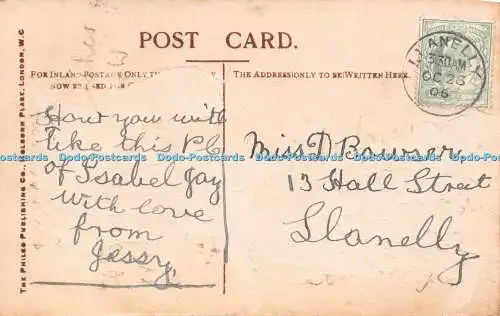 POST CARD.
FOR INLAND POSTAGE ONLY THIS
NOW BE USED FOR
THE ADDRESS ONLY TO BE WRITTEN HERE.
LLANELLY
OC 23
06
How you will
like this P.C
of Isabel Jay
with love
from
Jessy
Miss D Bowser
13 Hall Street
Llanelly
THE PHILCO PUBLISHING CO., HOLBORN PLACE, LONDON, W.C
Dodo-Postcards Dodo-Postcards Dodo-Postcards Dodo-Postcards Dodo-Postcards Dodo-Postcards